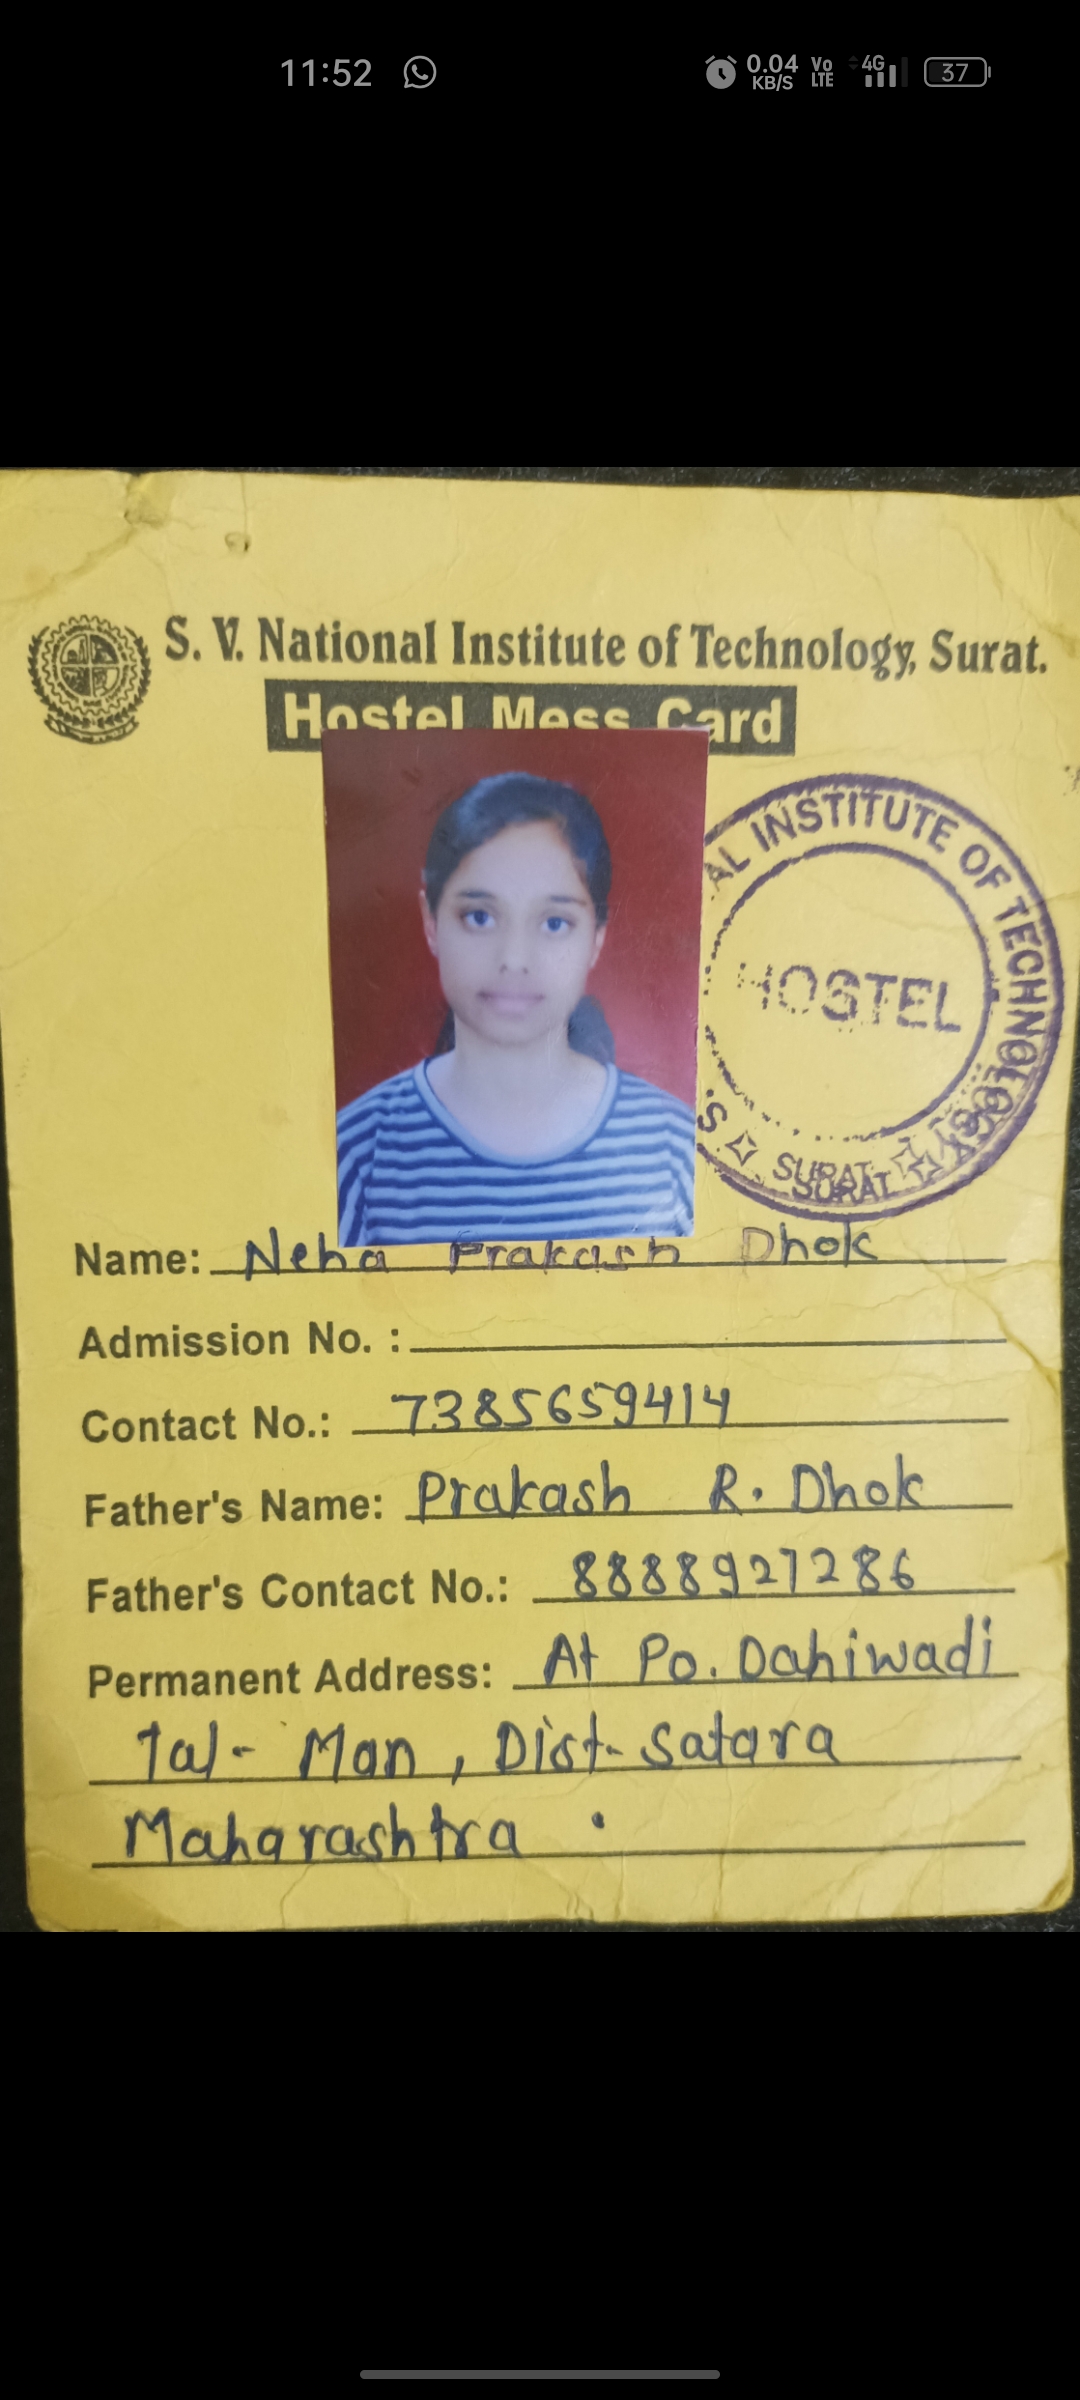 11:52 0.04 KB/S Vo LTE 4G 37
S. V. National Institute of Technology, Surat.
Hostel Mess Card
AL INSTITUTE OF TECHNOLOGY
HOSTEL
S.
SURAT
SURAT
Name: Neha Prakash Dhok
Admission No. :
Contact No.: 7385659414
Father's Name: Prakash R. Dhok
Father's Contact No.: 8888927286
Permanent Address: At Po. Dahiwadi
Tal- Man, Dist- Satara
Maharashtra .